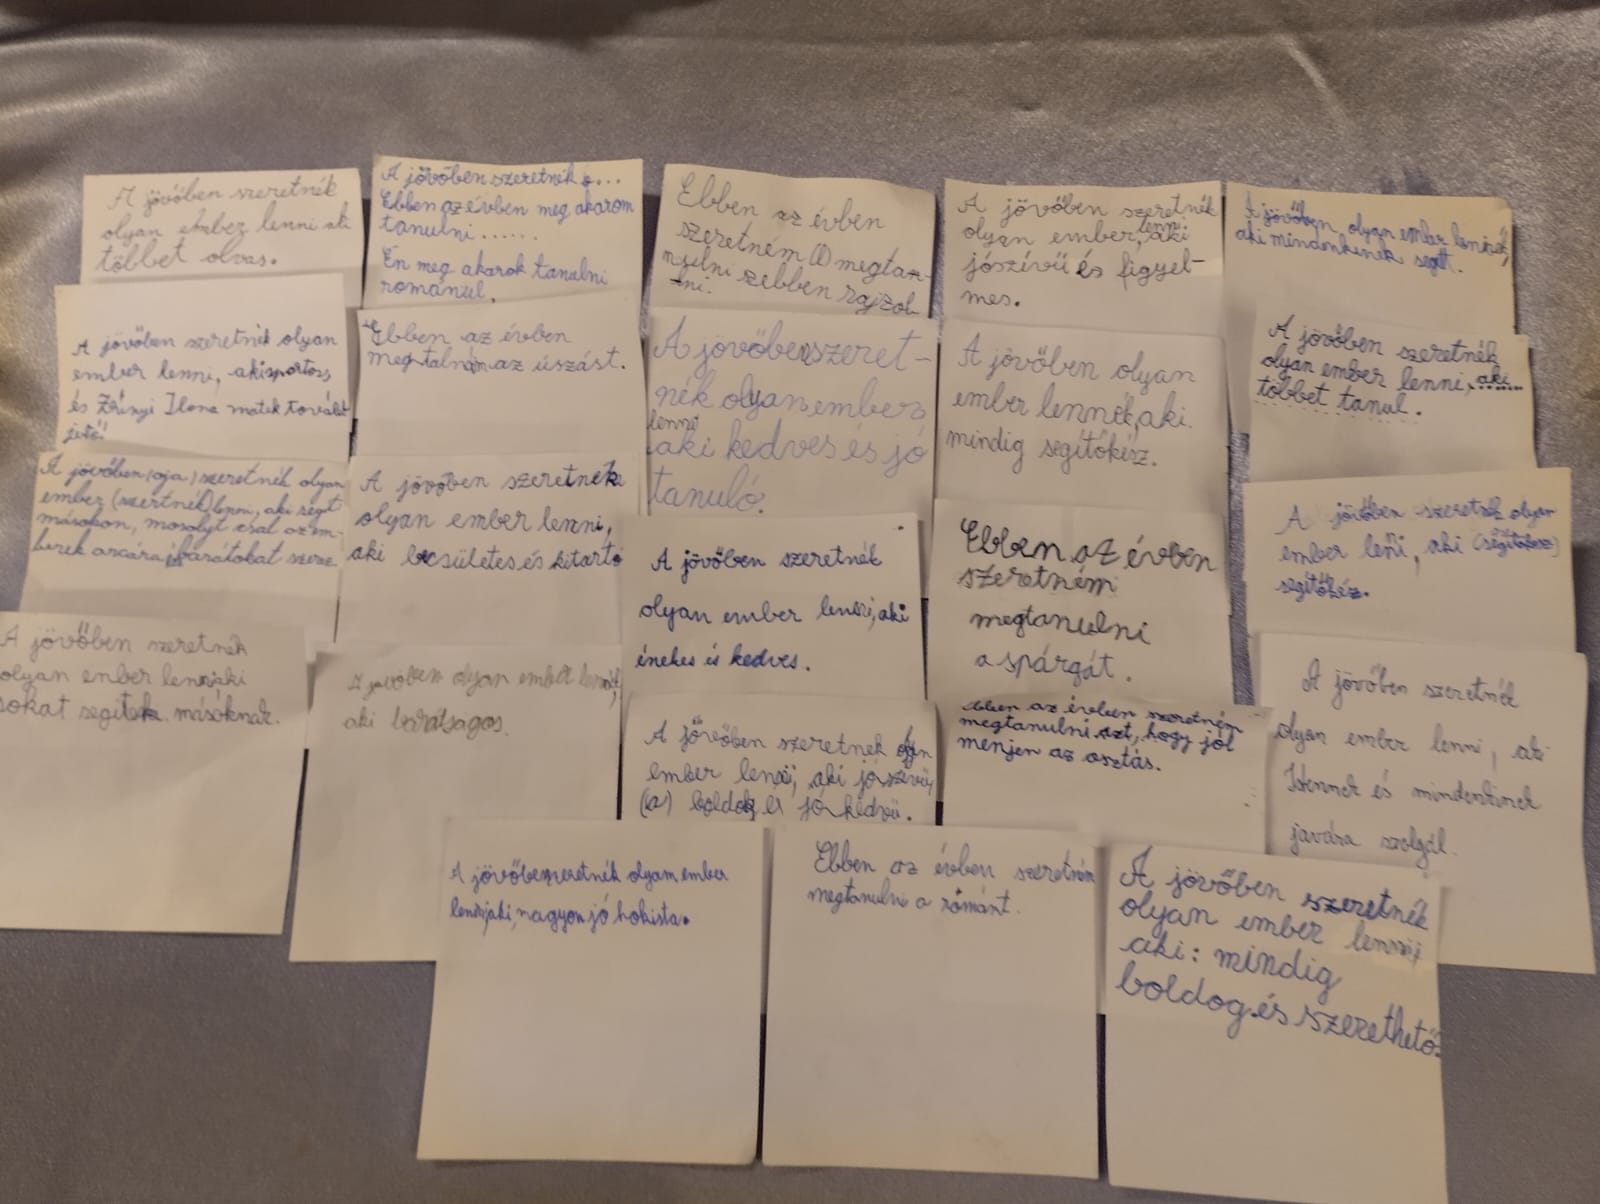 A jövőben szeretnék
olyan ember lenni aki
többet olvas.
A jövőben szeretnék o...
Ebben az évben meg akarom
tanulni ......
Én meg akarok tanulni
románul.
Ebben az évben
szeretném (l) megta-
nulni szebben rajzol-
ni.
A jövőben szeretnék
olyan ember lenni, aki
jószívű és figyel-
mes.
A jövőben olyan ember lennék,
aki mindenkinek segít.
A jövőben szeretnék olyan
ember lenni, aki sportos,
és Zrínyi Ilona matek tovább
jutó!
Ebben az évben
megtalnám az úszást.
A jövőben szeret-
nék olyan ember
lenni
aki kedves és jó
tanuló.
A jövőben olyan
ember lennék, aki
mindig segítőkész.
A jövőben szeretnék
olyan ember lenni, aki......
többet tanul.
A jövőben (oja) szeretnék olyan
ember (szertnék) lenni, aki segít
másokon, mosolyt csal az em-
berek arcára és barátobat szerez
A jövőben szeretnék
olyan ember lenni,
aki becsületes és kitartó
A jövőben szeretnék
olyan ember lenni, aki
énekes és kedves.
Ebben az évben
szeretném
megtanulni
a spárgát.
A jövőben szeretnék olyan
ember leni, aki (segitokesz)
segítőkéz.
A jövőben szeretnék
olyan ember lenni, aki
sokat segítek másoknak.
A jövőben olyan ember lennék,
aki barátságos.
A jövőben szeretnek olyan
ember lenni, aki jószívű,
(a) boldog és jó kedvű.
Ebben az évben szeretném
megtanulni azt, hogy jól
menjen az osztás.
A jövőben szeretnék
olyan ember lenni, aki
Istennek és mindenkinek
javára szolgál.
A jövőben szeretnék olyam ember
lenni, aki, nagyon jó hokista.
Ebben az évben szeretném
megtanulni a románt.
A jövőben szeretnék
olyan ember lenni,
aki: mindig
boldog és szerethető.